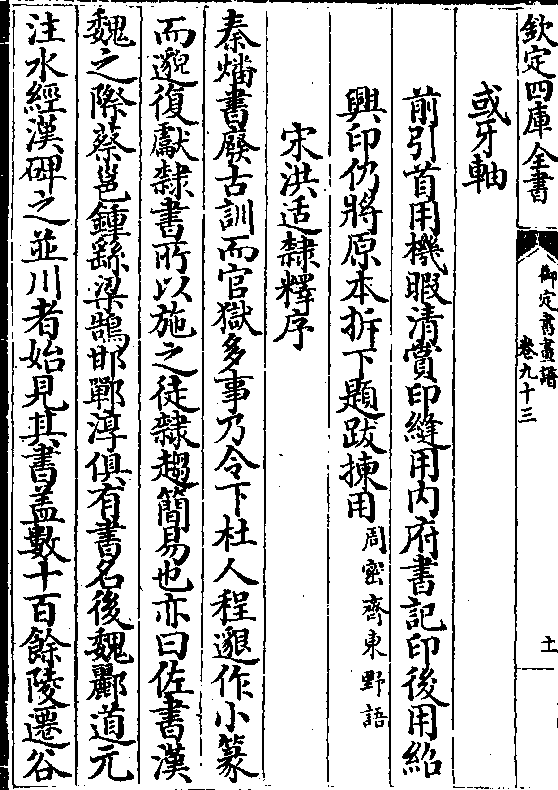 欽定四庫全書
御定書畫譜
卷九十三
十一
或牙軸
前引首用機暇清賞印縫用內府書記印後用紹
興印仍將原本拆下題跋揀用周密齊東野語
宋洪适隸釋序
秦燔書廢古訓而官獄多事乃令下杜人程邈作小篆
而邈復獻隸書所以施之徒隸趨簡易也亦曰佐書漢
魏之際蔡邕鍾繇梁鵠邯鄲淳俱有書名後魏酈道元
注水經漢碑之並川者始見其書蓋數十百餘陵遷谷